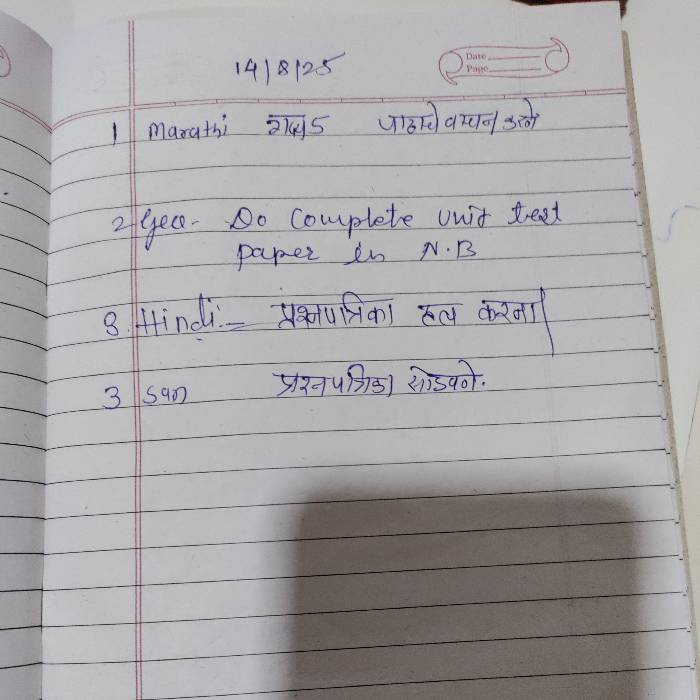 14/8/25
Date
Page
1 Marathi गद्य 5 पाठाचे वाचन करणे
2 Geo- Do complete unit test
paper in N.B
3. Hindi:- प्रश्नपत्रिका हल करना|
3 San प्रश्नपत्रिका सोडवणे.